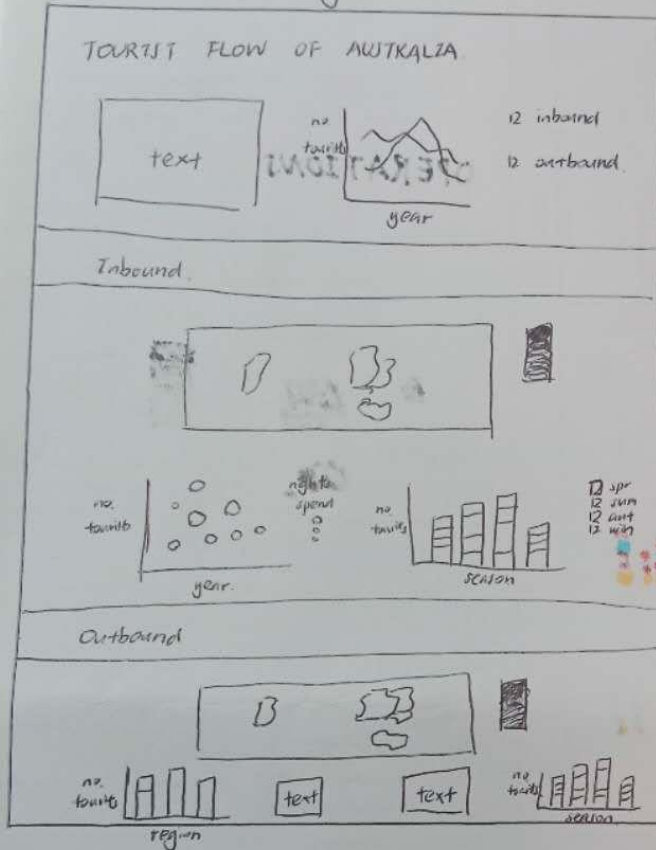 TOURIST FLOW OF AUSTRALIA
text
no.
tourists
year
12 inbound
12 outbound
OPERATIONS
Inbound
no.
tourists
year.
nights
spend
no.
tourists
season
12 spr
12 sum
12 aut
12 win
Outbound
no.
tourists
region
text
text
no.
tourists
season